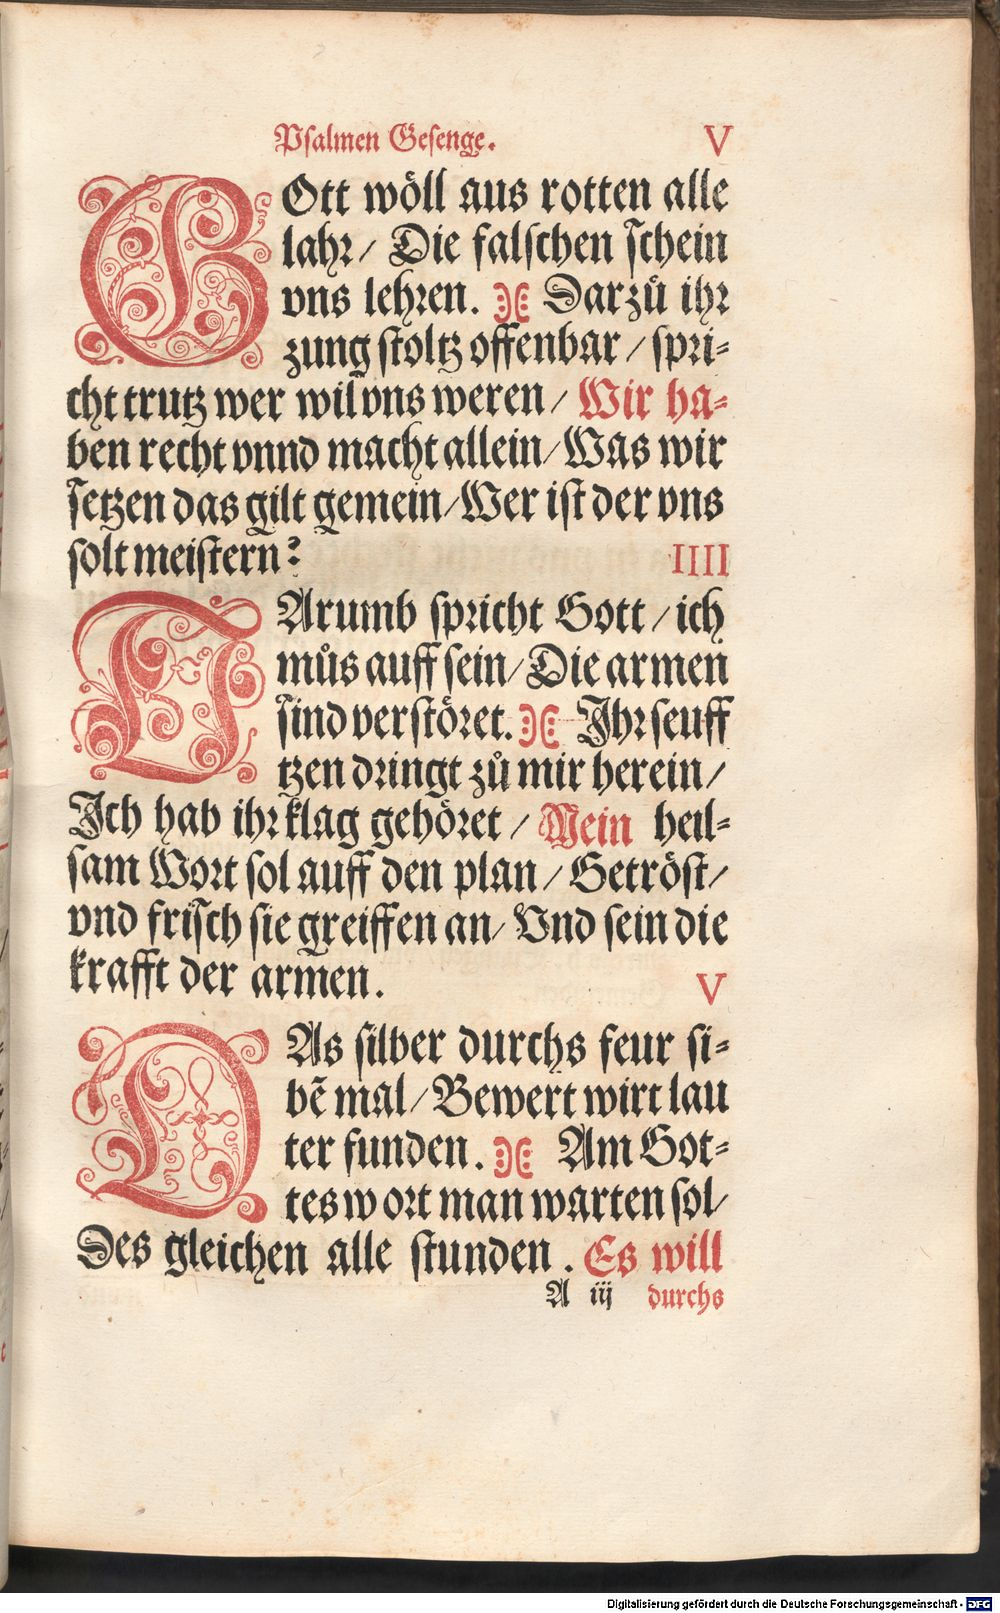 Psalmen Gesenge. V
GOtt wöll aus rotten alle
lahr / Die falschen schein
vns lehren. Darzů ihr
zung stoltz offenbar / spri⸗
cht trutz wer wil vns weren / Wir ha⸗
ben recht vnnd macht allein / Was wir
setzen das gilt gemein / Wer ist der vns
solt meistern? IIII
DArumb spricht Gott / ich
můs auff sein / Die armen
sind verstöret. Ihr seuff
tzen dringt zů mir herein /
Ich hab ihr klag gehöret / Mein heil⸗
sam Wort sol auff den plan / Getröst /
vnd frisch sie greiffen an / Vnd sein die
krafft der armen. V
DAs silber durchs feur si⸗
bẽ mal / Bewert wirt lau
ter funden. Am Got⸗
tes wort man warten sol /
Des gleichen alle stunden. Es will
A iij durchs
Digitalisierung gefördert durch die Deutsche Forschungsgemeinschaft - DFG